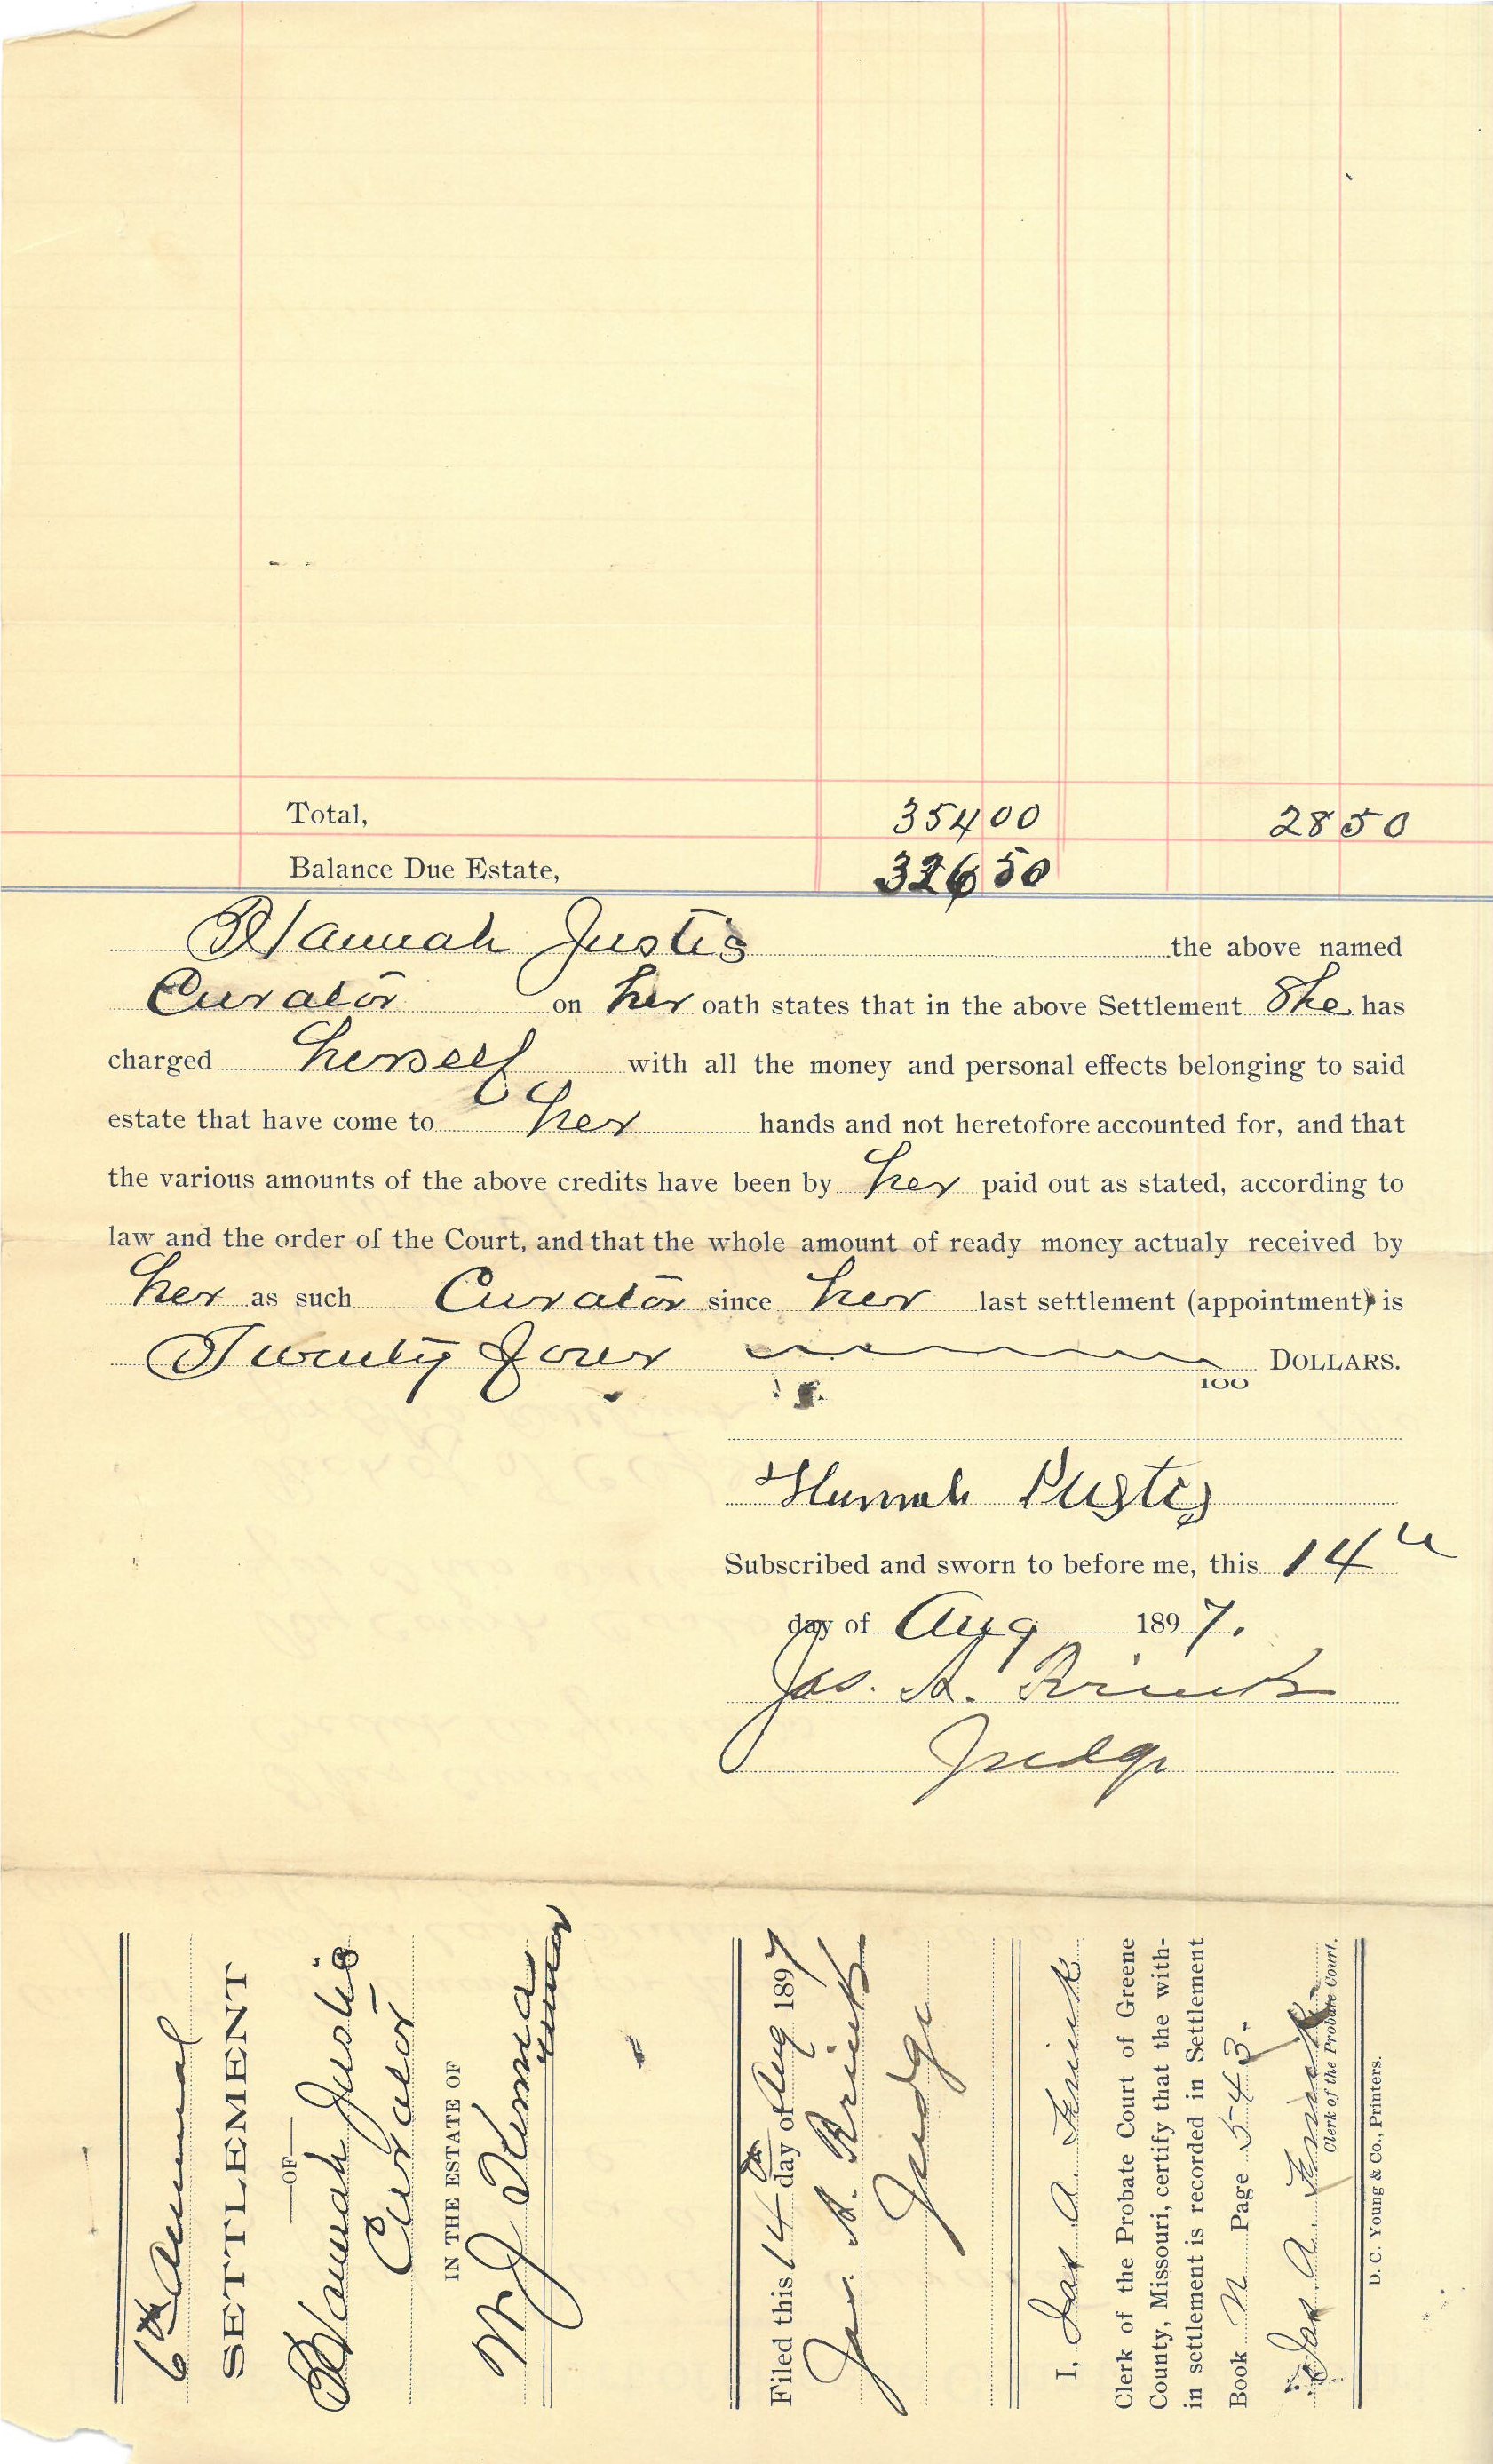 Total, 354 00 28 50
Balance Due Estate, 326 50
Hannah Justis the above named
Curator on her oath states that in the above Settlement She has
charged herself with all the money and personal effects belonging to said
estate that have come to her hands and not heretofore accounted for, and that
the various amounts of the above credits have been by her paid out as stated, according to
law and the order of the Court, and that the whole amount of ready money actualy received by
her as such Curator since her last settlement (appointment) is
Twenty four DOLLARS.
100
Hannah Justis
Subscribed and sworn to before me, this 14th
day of Aug 1897.
Jas. A. Frink
Judge
6th Annual
SETTLEMENT
—OF—
Hannah Justis
Curator
IN THE ESTATE OF
M J
minor
Filed this 14th day of Aug 1897
Jas. A. Frink
Judge
I, Jas A. Frink
Clerk of the Probate Court of Greene
County, Missouri, certify that the with-
in settlement is recorded in Settlement
Book N Page 543.
Jas A. Frink
Clerk of the Probate Court.
D. C. Young & Co., Printers.